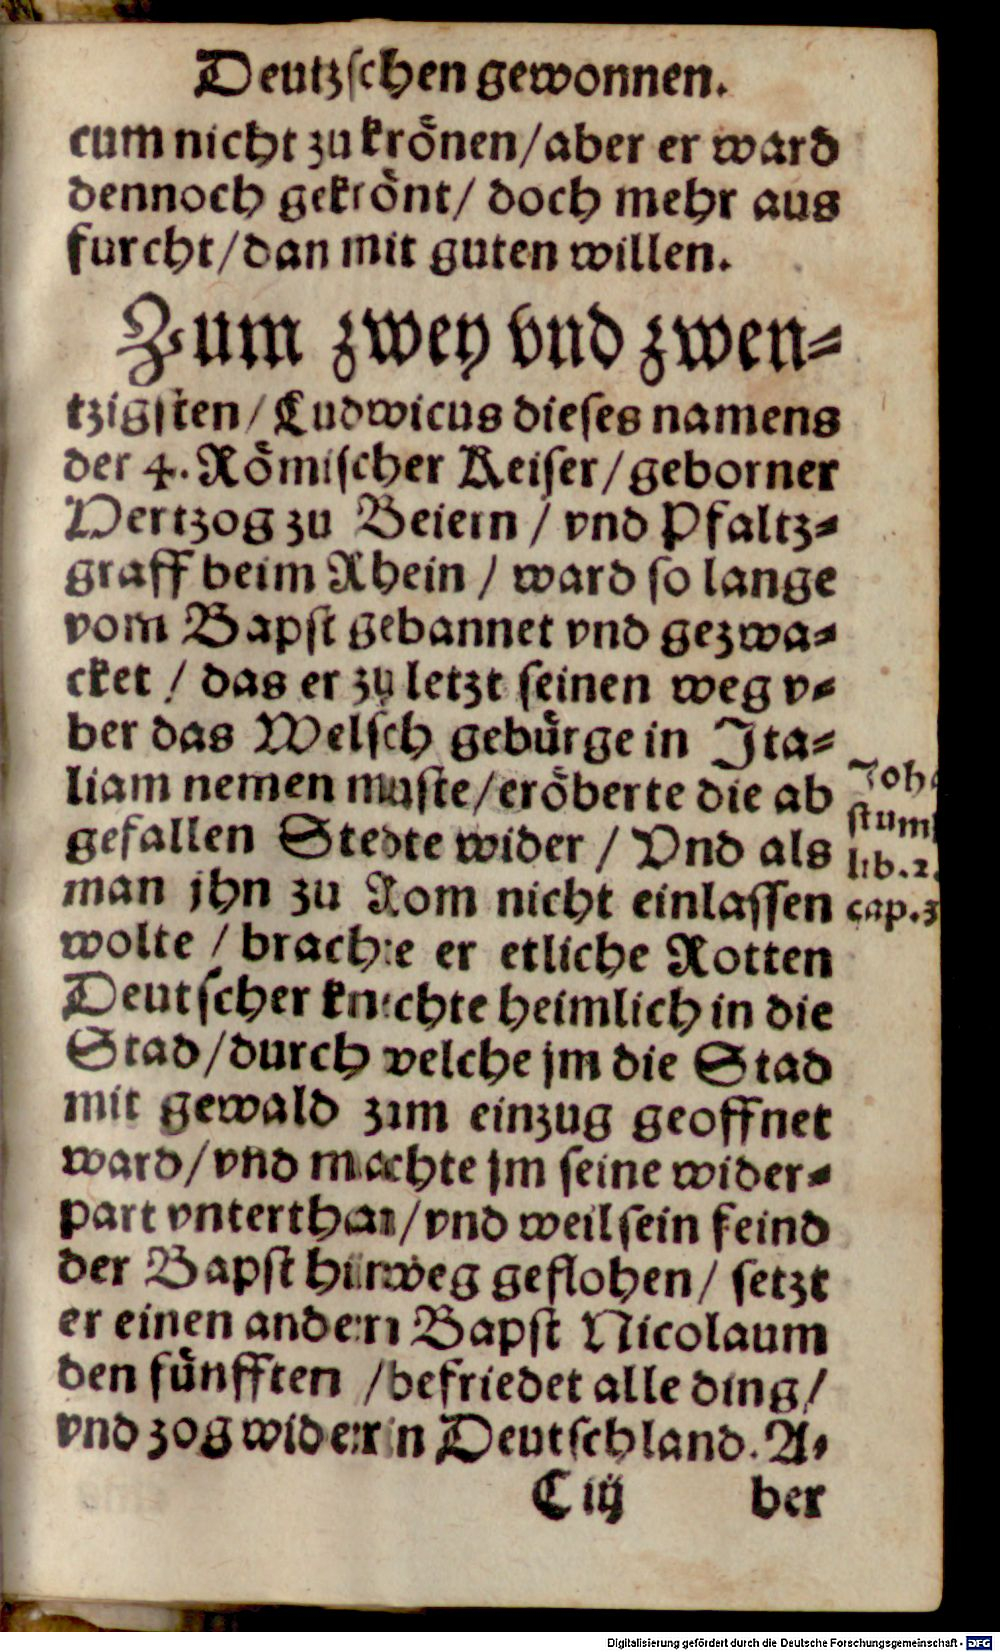 Deutzschen gewonnen.
cum nicht zu krönen/aber er ward
dennoch gekrönt/ doch mehr aus
furcht/dan mit guten willen.
Zum zwey vnd zwen-
tzigsten/ Ludwicus dieses namens
der 4. Römischer Keiser/ geborner
Hertzog zu Beiern / vnd Pfaltz-
graff beim Rhein / ward so lange
vom Bapst gebannet vnd gezwa-
cket / das er zu letzt seinen weg v-
ber das Welsch gebürge in Jta-
liam nemen muste/eröberte die ab
gefallen Stedte wider / Vnd als
man jhn zu Rom nicht einlassen
wolte / brachte er etliche Rotten
Deutscher knechte heimlich in die
Stad/durch welche jm die Stad
mit gewald zum einzug geoffnet
ward/vnd machte jm seine wider-
part vnterthan/vnd weil sein feind
der Bapst hinweg geflohen/ setzt
er einen andern Bapst Nicolaum
den fünfften /befriedet alle ding/
vnd zog wider in Deutschland. A-
C iij ber
Joh.
stum
lib.2.
cap.3
Digitalisierung gefördert durch die Deutsche Forschungsgemeinschaft - DFG